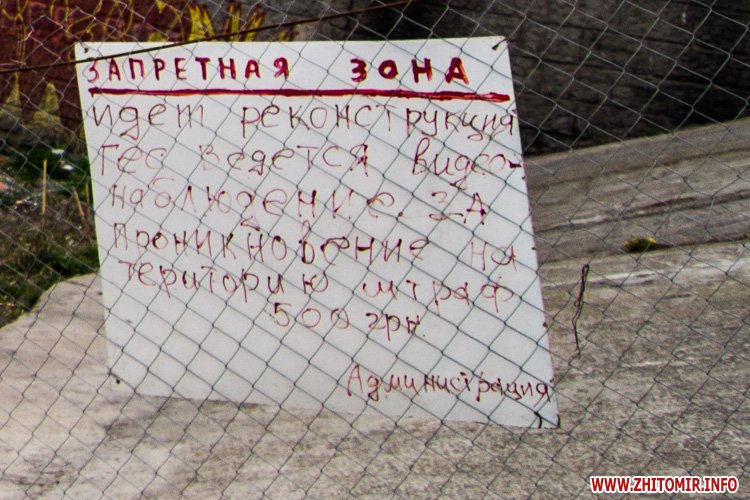 ЗАПРЕТНАЯ ЗОНА
идет реконструкция
гес ведется видео-
наблюдение. ЗА
проникновение на
територию штраф
500 грн.
Администрация
WWW.ZHITOMIR.INFO